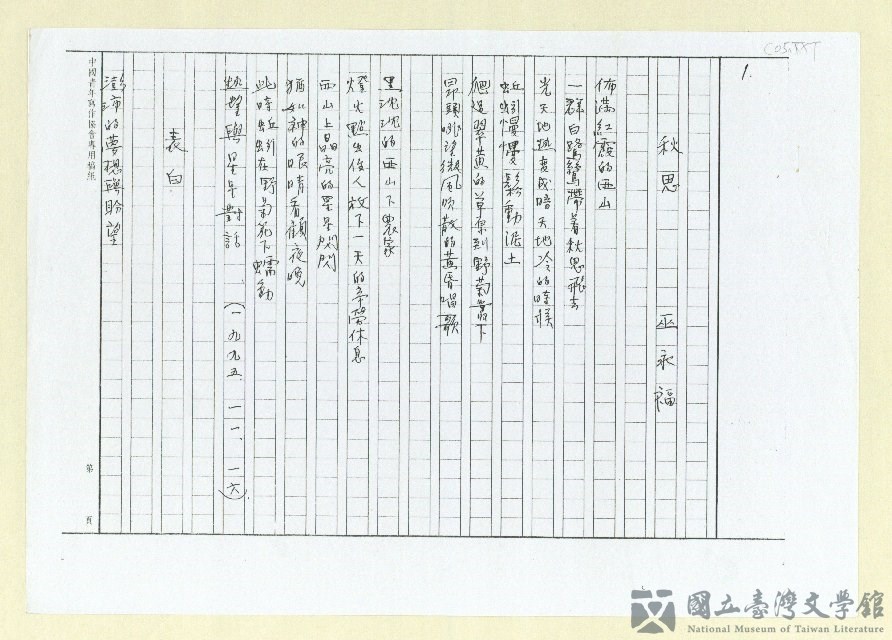 C05.TXT
1.
秋思　巫永福
佈滿紅霞的西山
一群白鷺鷥帶著秋思飛去
光天地熱變成暗天地冷的時候
蚯蚓慢慢鬆動泥土
爬過翠黃的草梨到野菊叢下
昂頭眺望微風吹散的黃昏唱歌
黑沈沈的西山下農家
燈火點出後人放下一天的辛勞休息
西山上晶亮的星星閃閃
猶如神的眼睛看顧夜晚
此時蚯蚓在野菊花下蠕動
翹望與星星對話。（一九九五、一一、一六）
表白
澎沛的夢想與盼望
中國青年寫作協會專用稿紙
第　頁
國立臺灣文學館
National Museum of Taiwan Literature